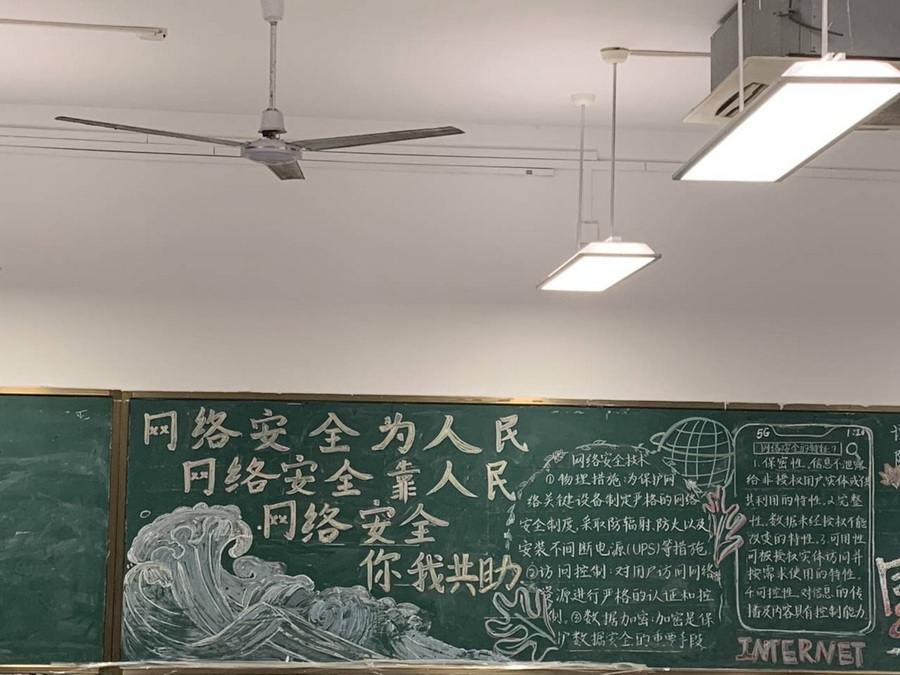 网络安全为人民
网络安全靠人民
网络安全
你我共助
网络安全技术
①物理措施:为保护网
络关键设备制定严格的网络
安全制度,采取防辐射,防火以及
安装不间断电源(UPS)等措施
②访问控制:对用户访问网络
资源进行严格的认证和控
制.③数据加密:加密是保
护数据安全的重要手段
5G
网络安全的特征?
1.保密性.信息不泄露
给非授权用户实体或供
其利用的特性.2.完整
性.数据未经授权不能
改变的特性.3.可用性
可被授权实体访问并
按需求使用的特性.
4.可控性.对信息的传
播及内容具有控制能力
INTERNET